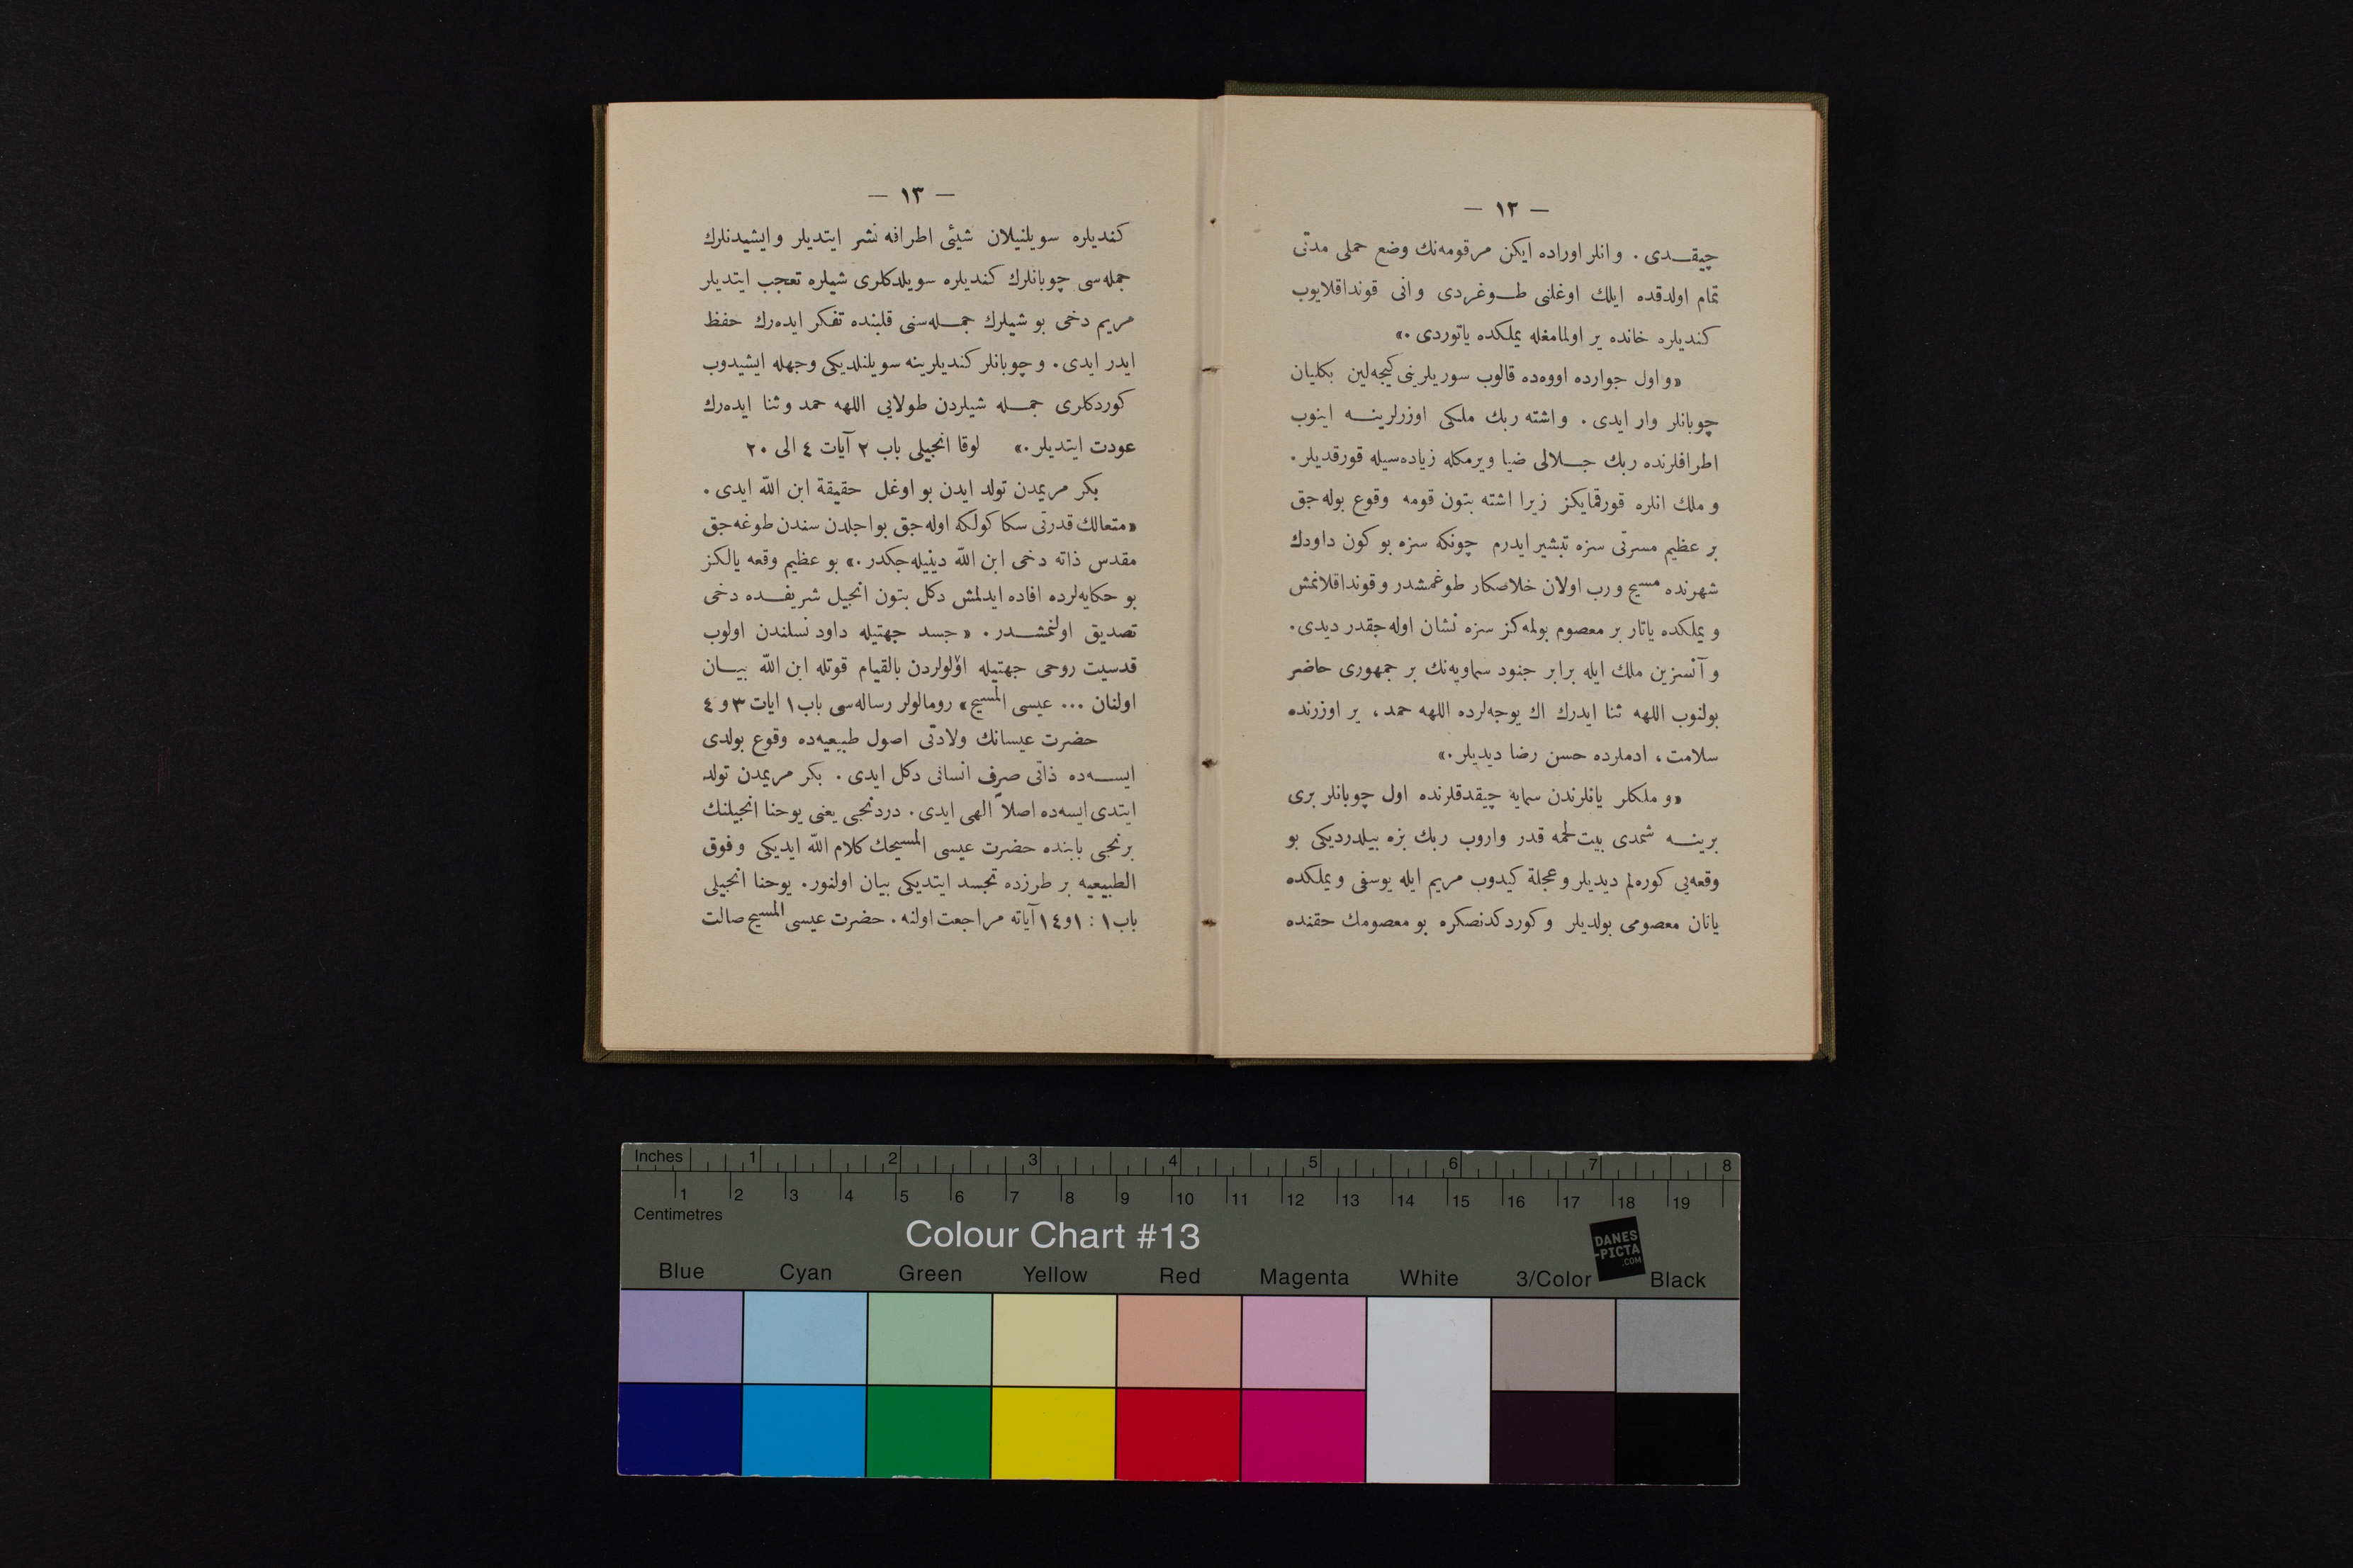 — ١٢ —
چیقــدی . وانلر اوراده ایکن مرقومه‌نك وضع حملی مدتی
تمام اولدقده ایلك اوغلنی طــوغردی وانی قونداقلایوب
کندیلره خانده یر اولمامغله یملکده یاتوردی .»
«و اول جوارده اووه‌ده قالوب سوریلرینی کیجه‌لین بکلیان
چوبانلر وار ایدی . واشته ربك ملکی اوزرلرینــه اینوب
اطرافلرنده ربك جــلالی ضیا ویرمکله زیاده‌سیله قورقدیلر .
و ملك انلره قورقمایکز زیرا اشته بتون قومه وقوع بوله‌جق
بر عظیم مسرتی سزه تبشیر ایدرم چونکه سزه بو کون داودك
شهرنده مسیح و رب اولان خلاصکار طوغمشدر و قونداقلانمش
و یملکده یاتار بر معصوم بولمه‌کز سزه نشان اوله‌جقدر دیدی .
و آنسزین ملك ایله برابر جنود سماویه‌نك بر جمهوری حاضر
بولنوب اللهه ثنا ایدرك اك یوجه‌لرده اللهه حمد ، یر اوزرنده
سلامت ، ادملرده حسن رضا دیدیلر .»
«و ملکلر یانلرندن سمایه چیقدقلرنده اول چوبانلر بری
برینــه شمدی بیت‌لحمه قدر واروب ربك بزه بیلدردیکی بو
وقعه‌یی کوره‌لم دیدیلر و عجلة کیدوب مریم ایله یوسفی و یملکده
یاتان معصومی بولدیلر و کوردکدنصکره بو معصومك حقنده
— ١٣ —
کندیلره سویلنیلان شیئی اطرافه نشر ایتدیلر وایشیدنلرك
جمله‌سی چوبانلرك کندیلره سویلدکلری شیلره تعجب ایتدیلر
مریم دخی بو شیلرك جمــله‌سنی قلبنده تفکر ایده‌رك حفظ
ایدر ایدی . و چوبانلر کندیلرینه سویلنلدیکی وجهله ایشیدوب
کوردکلری جمــله شیلردن طولایی اللهه حمد و ثنا ایده‌رك
عودت ایتدیلر .» لوقا انجیلی باب ٢ آیات ٤ الی ٢٠
بکر مریمدن تولد ایدن بو اوغل حقیقة ابن اللّه ایدی .
«متعالك قدرتی سکا کولکه اوله‌جق بو اجلدن سندن طوغه‌جق
مقدس ذاته دخی ابن اللّه دینیله‌جکدر .» بو عظیم وقعه یالکز
بو حکایه‌لرده افاده ایدلمش دکل بتون انجیل شریفــده دخی
تصدیق اولنمشــدر . «جسد جهتیله داود نسلندن اولوب
قدسیت روحی جهتیله اؤلولردن بالقیام قوتله ابن اللّه بیــان
اولنان ... عیسی المسیح» رومالولر رساله‌سی باب ١ ایات ٣ و ٤
حضرت عیسانك ولادتی اصول طبیعیه‌ده وقوع بولدی
ایســه‌ده ذاتی صرف انسانی دکل ایدی . بکر مریمدن تولد
ایتدی ایسه‌ده اصلاً الهی ایدی . دردنجی یعنی یوحنا انجیلنك
برنجی بابنده حضرت عیسی المسیحك کلام اللّه ایدیکی و فوق
الطبیعیه بر طرزده تجسد ایتدیکی بیان اولنور . یوحنا انجیلی
باب ١ : ١ و ١٤ آیاته مراجعت اولنه . حضرت عیسی المسیح صالت
Inches 1 2 3 4 5 6 7 8
1 2 3 4 5 6 7 8 9 10 11 12 13 14 15 16 17 18 19
Centimetres
Colour Chart #13
DANES
-PICTA
.COM
Blue Cyan Green Yellow Red Magenta White 3/Color Black